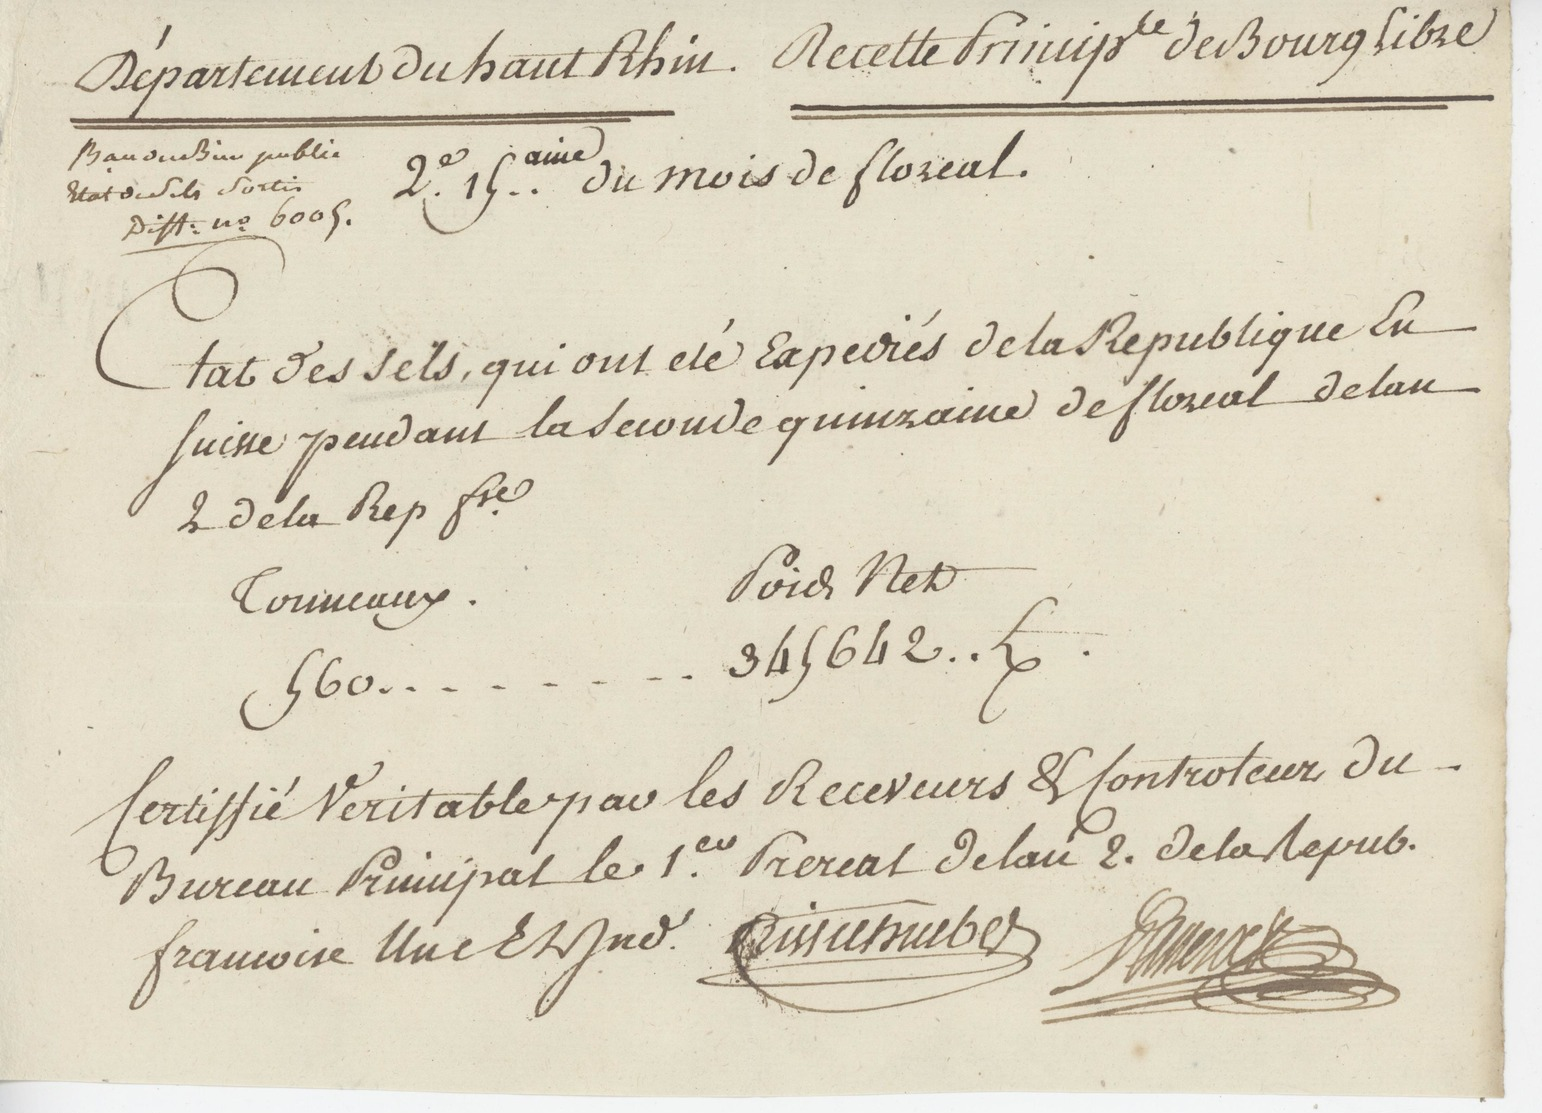 Département du haut Rhin. Recette Princip.le de Bourg Libre
public
Etat de Sels Sortis
Diff.: n.o 6005.
2.e 15..aine du mois de floreal.
Etat des Sels, qui ont eté Expediés de la Republique En
Suisse pendant la Seconde quinzaine de floreal de lan
2 de la Rep fse.
Tonneaux. Poids Net
560......... 345642.. ℔.
Certiffié Veritable par les Receveurs & Controleur du
Bureau Principal le 1.er Prereal de lan 2. de la Repub.
francoise Une Et Ind.